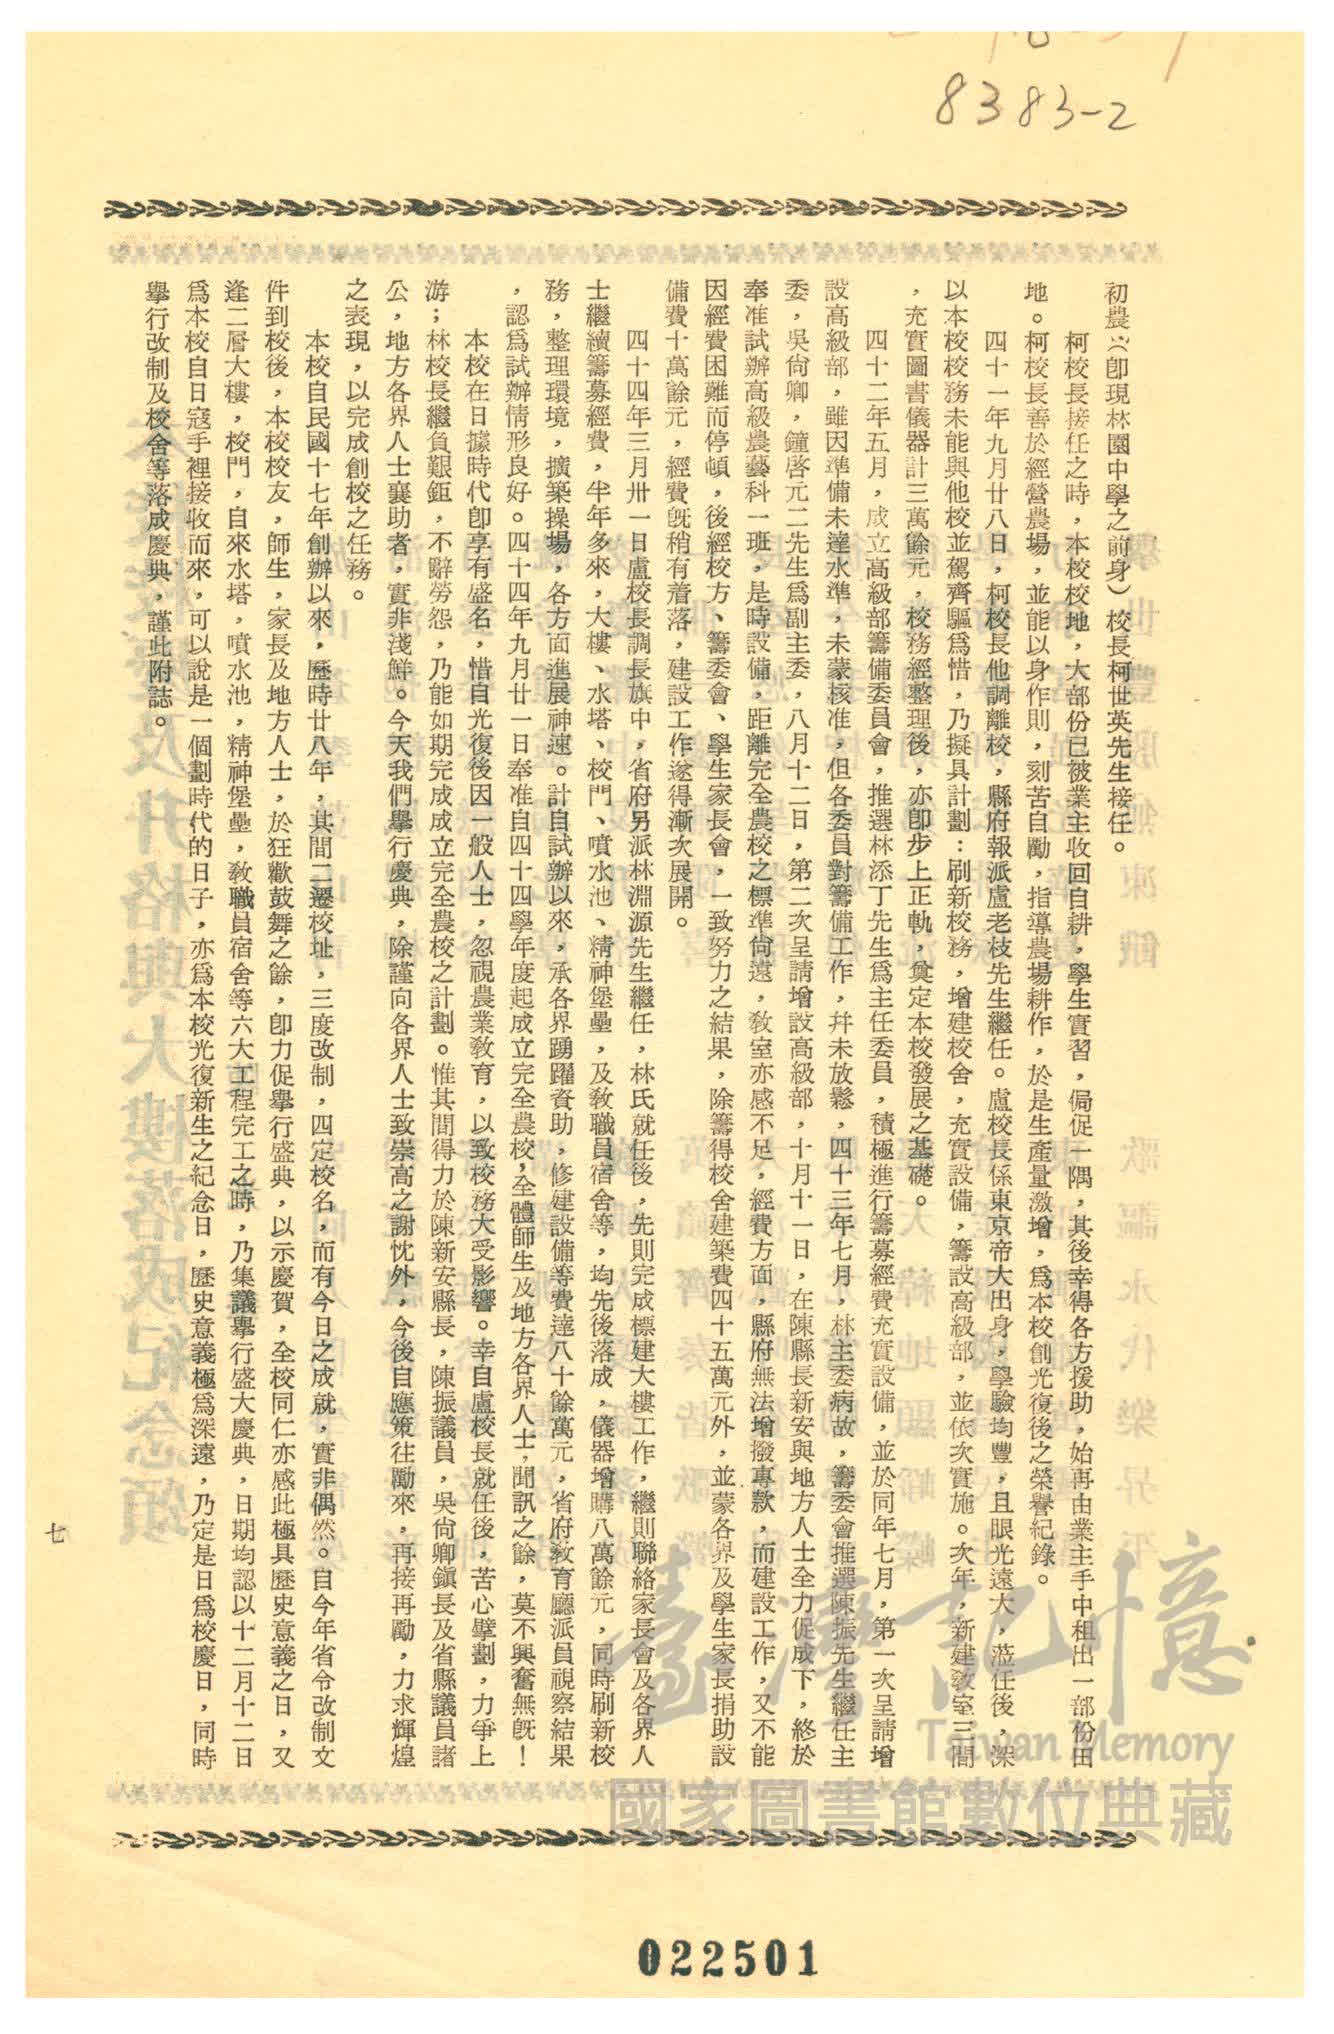 8383-2
初農（卽現林園中學之前身）校長柯世英先生接任。
柯校長接任之時，本校校地，大部份已被業主收回自耕，學生實習，侷促一隅，其後幸得各方援助，始再由業主手中租出一部份田
地。柯校長善於經營農場，並能以身作則，刻苦自勵，指導農場耕作，於是生產量激增，爲本校創光復後之榮譽紀錄。
四十一年九月廿八日，柯校長他調離校，縣府報派盧老枝先生繼任。盧校長係東京帝大出身，學驗均豐，且眼光遠大，蒞任後，深
以本校校務未能與他校並駕齊驅爲惜，乃擬具計劃：刷新校務，增建校舍，充實設備，籌設高級部，並依次實施。次年，新建敎室三間
，充實圖書儀器計三萬餘元，校務經整理後，亦卽步上正軌，奠定本校發展之基礎。
四十二年五月，成立高級部籌備委員會，推選林添丁先生爲主任委員，積極進行籌募經費充實設備，並於同年七月，第一次呈請增
設高級部，雖因準備未達水準，未蒙核准，但各委員對籌備工作，幷未放鬆，四十三年七月，林主委病故，籌委會推選陳振先生繼任主
委，吳尙卿，鐘啓元二先生爲副主委，八月十二日，第二次呈請增設高級部，十月十一日，在陳縣長新安與地方人士全力促成下，終於
奉准試辦高級農藝科一班，是時設備，距離完全農校之標準尙遠，敎室亦感不足，經費方面，縣府無法增撥專款，而建設工作，又不能
因經費困難而停頓，後經校方、籌委會、學生家長會，一致努力之結果，除籌得校舍建築費四十五萬元外，並蒙各界及學生家長捐助設
備費十萬餘元，經費旣稍有着落，建設工作遂得漸次展開。
四十四年三月卅一日盧校長調長旗中，省府另派林淵源先生繼任，林氏就任後，先則完成標建大樓工作，繼則聯絡家長會及各界人
士繼續籌募經費，半年多來，大樓、水塔、校門、噴水池、精神堡壘，及敎職員宿舍等，均先後落成，儀器增購八萬餘元，同時刷新校
務，整理環境，擴築操場，各方面進展神速。計自試辦以來，承各界踴躍資助，修建設備等費達八十餘萬元，省府敎育廳派員視察結果
，認爲試辦情形良好。四十四年九月廿一日奉准自四十四學年度起成立完全農校，全體師生及地方各界人士，聞訊之餘，莫不興奮無旣！
本校在日據時代卽享有盛名，惜自光復後因一般人士，忽視農業敎育，以致校務大受影響。幸自盧校長就任後，苦心擘劃，力爭上
游；林校長繼負艱鉅，不辭勞怨，乃能如期完成成立完全農校之計劃。惟其間得力於陳新安縣長，陳振議員，吳尙卿鎭長及省縣議員諸
公，地方各界人士襄助者，實非淺鮮。今天我們舉行慶典，除謹向各界人士致崇高之謝忱外，今後自應策往勵來，再接再勵，力求輝煌
之表現，以完成創校之任務。
本校自民國十七年創辦以來，歷時廿八年，其間二遷校址，三度改制，四定校名，而有今日之成就，實非偶然。自今年省令改制文
件到校後，本校校友，師生，家長及地方人士，於狂歡鼓舞之餘，卽力促舉行盛典，以示慶賀，全校同仁亦感此極具歷史意義之日，又
逢二層大樓，校門，自來水塔，噴水池，精神堡壘，敎職員宿舍等六大工程完工之時，乃集議舉行盛大慶典，日期均認以十二月十二日
爲本校自日寇手裡接收而來，可以說是一個劃時代的日子，亦爲本校光復新生之紀念日，歷史意義極爲深遠，乃定是日爲校慶日，同時
舉行改制及校舍等落成慶典，謹此附誌。
七
臺灣記憶
Taiwan Memory
國家圖書館數位典藏
022501